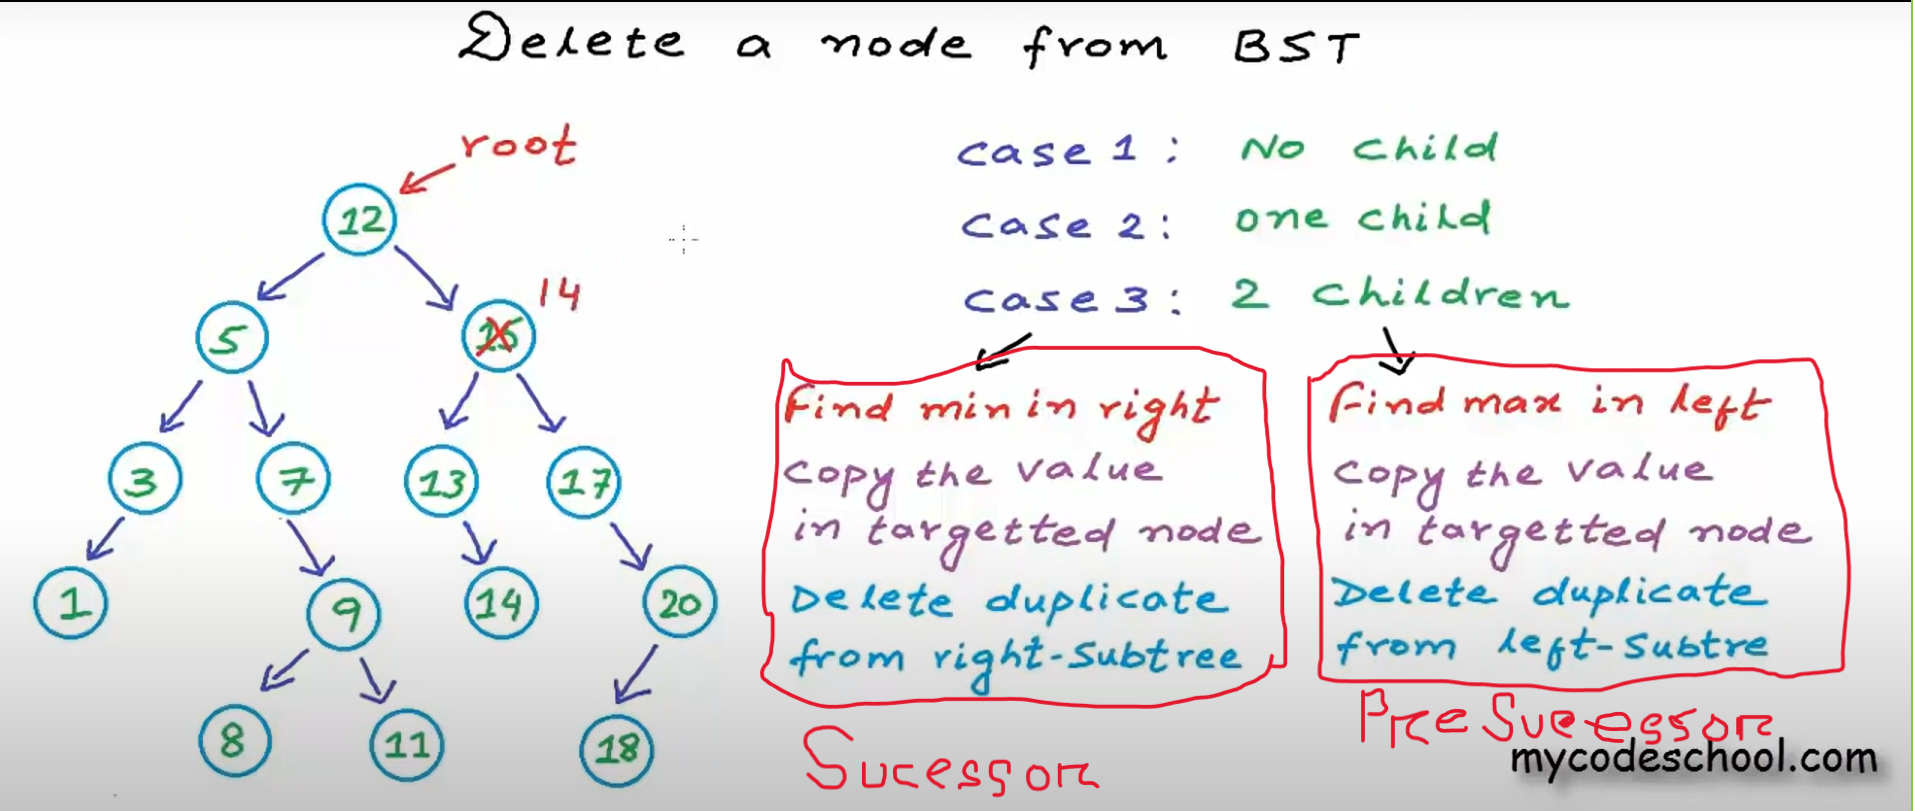 Delete a node from BST
root
12
14
5
15
3
7
13
17
1
9
14
20
8
11
18
case 1 : No child
case 2 : one child
case 3 : 2 children
Find min in right
copy the value
in targetted node
Delete duplicate
from right-subtree
Sucessor
Find max in left
copy the value
in targetted node
Delete duplicate
from left-subtre
mycodeschool.com